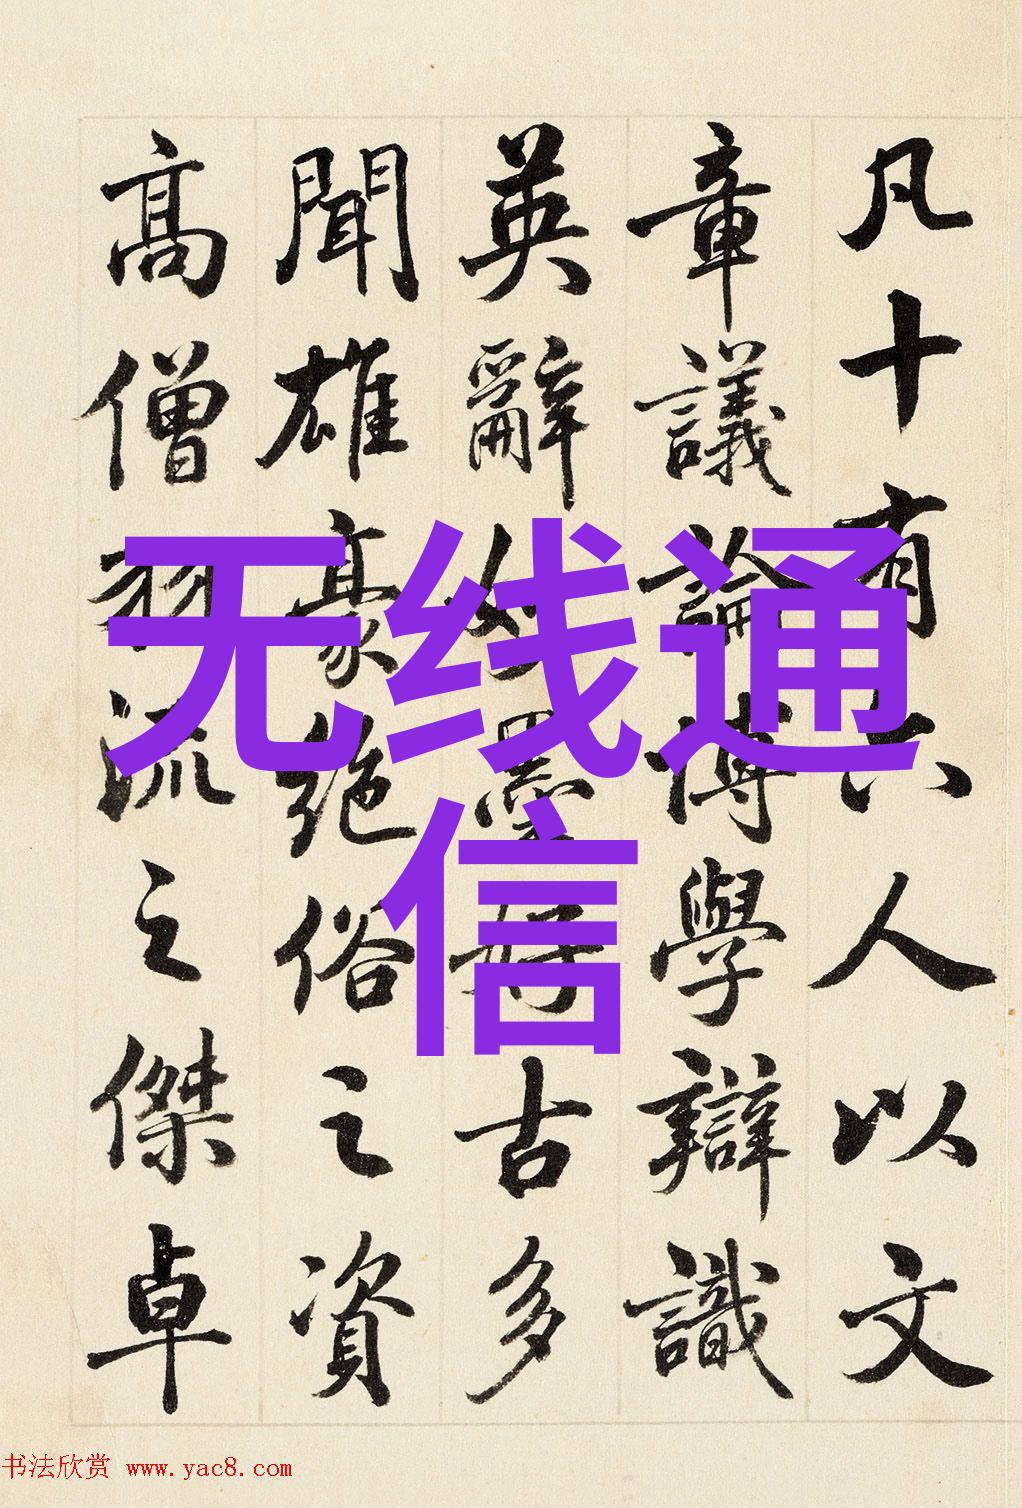 凡十有六人以文
章議論博學辯識
英辭妙墨好古多
聞雄豪絕俗之資
高僧羽流之傑卓
无线通
信
书法欣赏 www.yac8.com